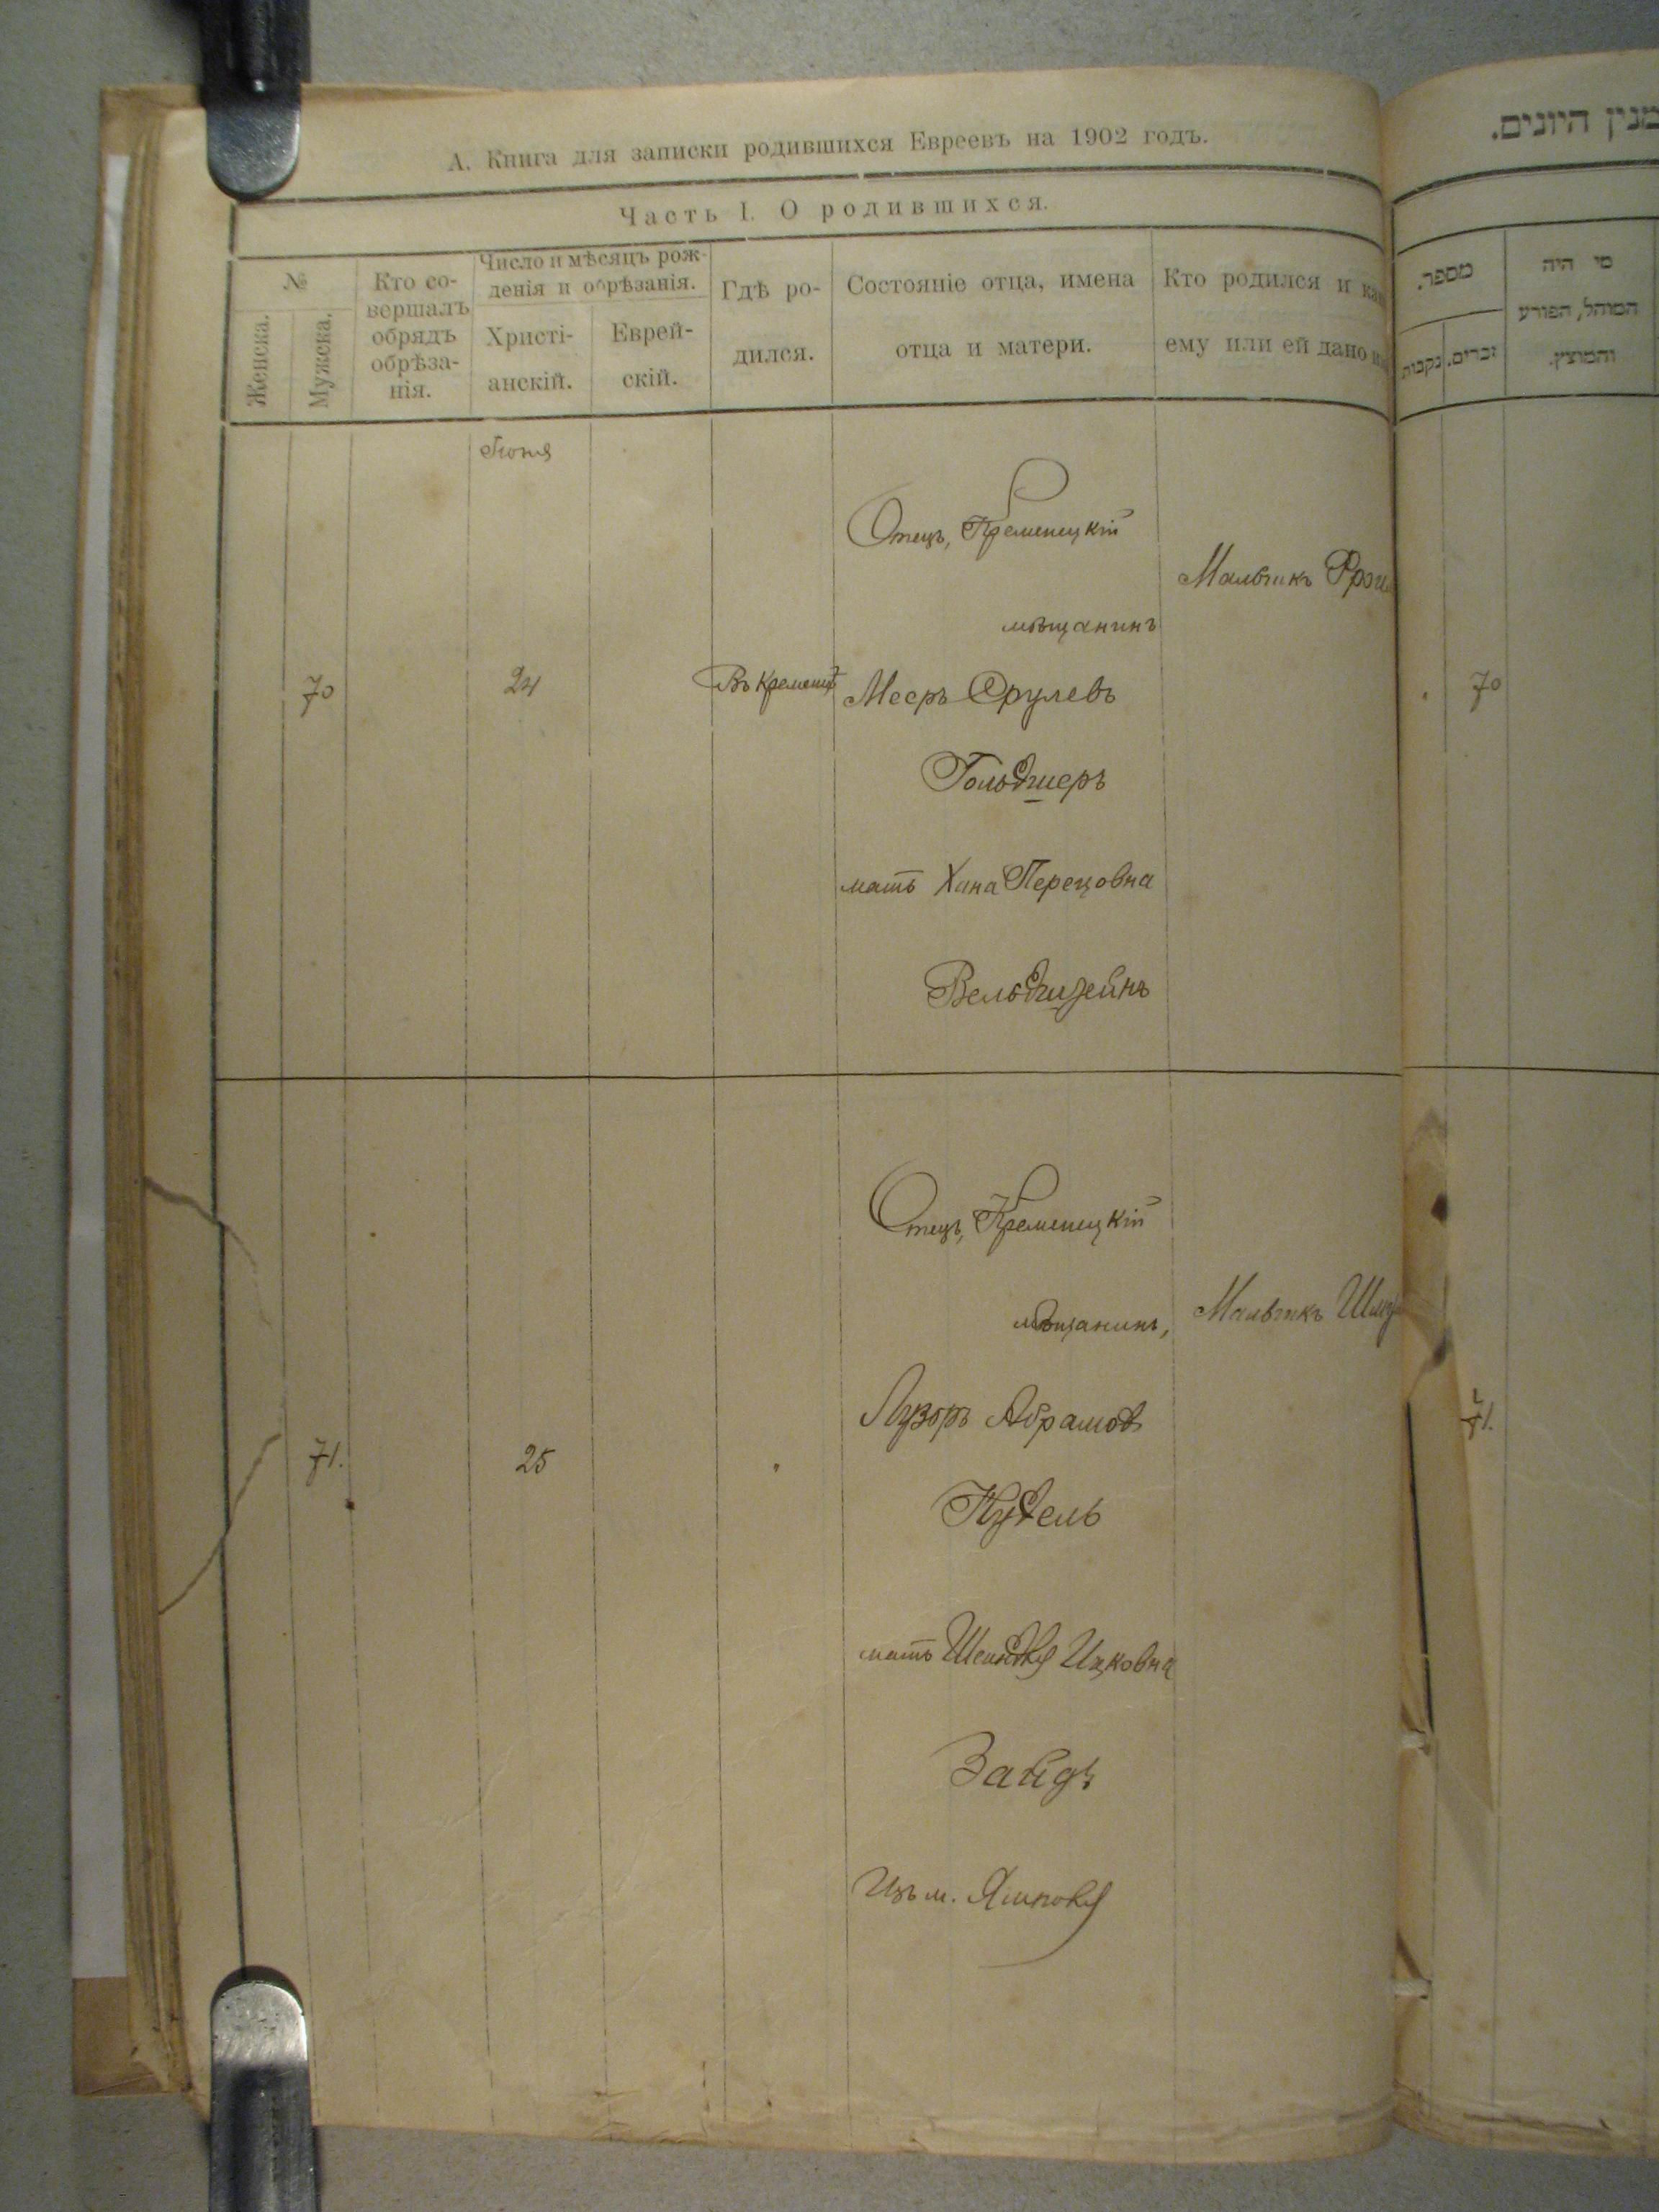 А. Книга для записки родившихся Евреевъ на 1902 годъ.
Часть I. О родившихся.
№
Женска.
Мужска.
Кто со-
вершалъ
обрядъ
обрѣза-
нія.
Число и мѣсяцъ рож-
денія и обрѣзанія.
Христі-
анскій.
Еврей-
скій.
Гдѣ ро-
дился.
Состояніе отца, имена
отца и матери.
Кто родился и
ему или ей дано
Іюня
70
24
Въ Кременцѣ
Отецъ, Кременецкій
мѣщанинъ
Мееръ Срулевъ
Гольдшеръ
мать Хана Перецовна
Мальчикъ
71.
25
Отецъ, Кременецкій
мѣщанинъ,
Лузоръ Абрамов
Кудель
мать Шейндля Ицковна
Зайдъ
Изъ м. Ямполя
Мальчикъ
מנין היונים.
מספר.
נקבות
זכרים.
מי היה
המוהל, הפורע
והמוצץ.
70
71.